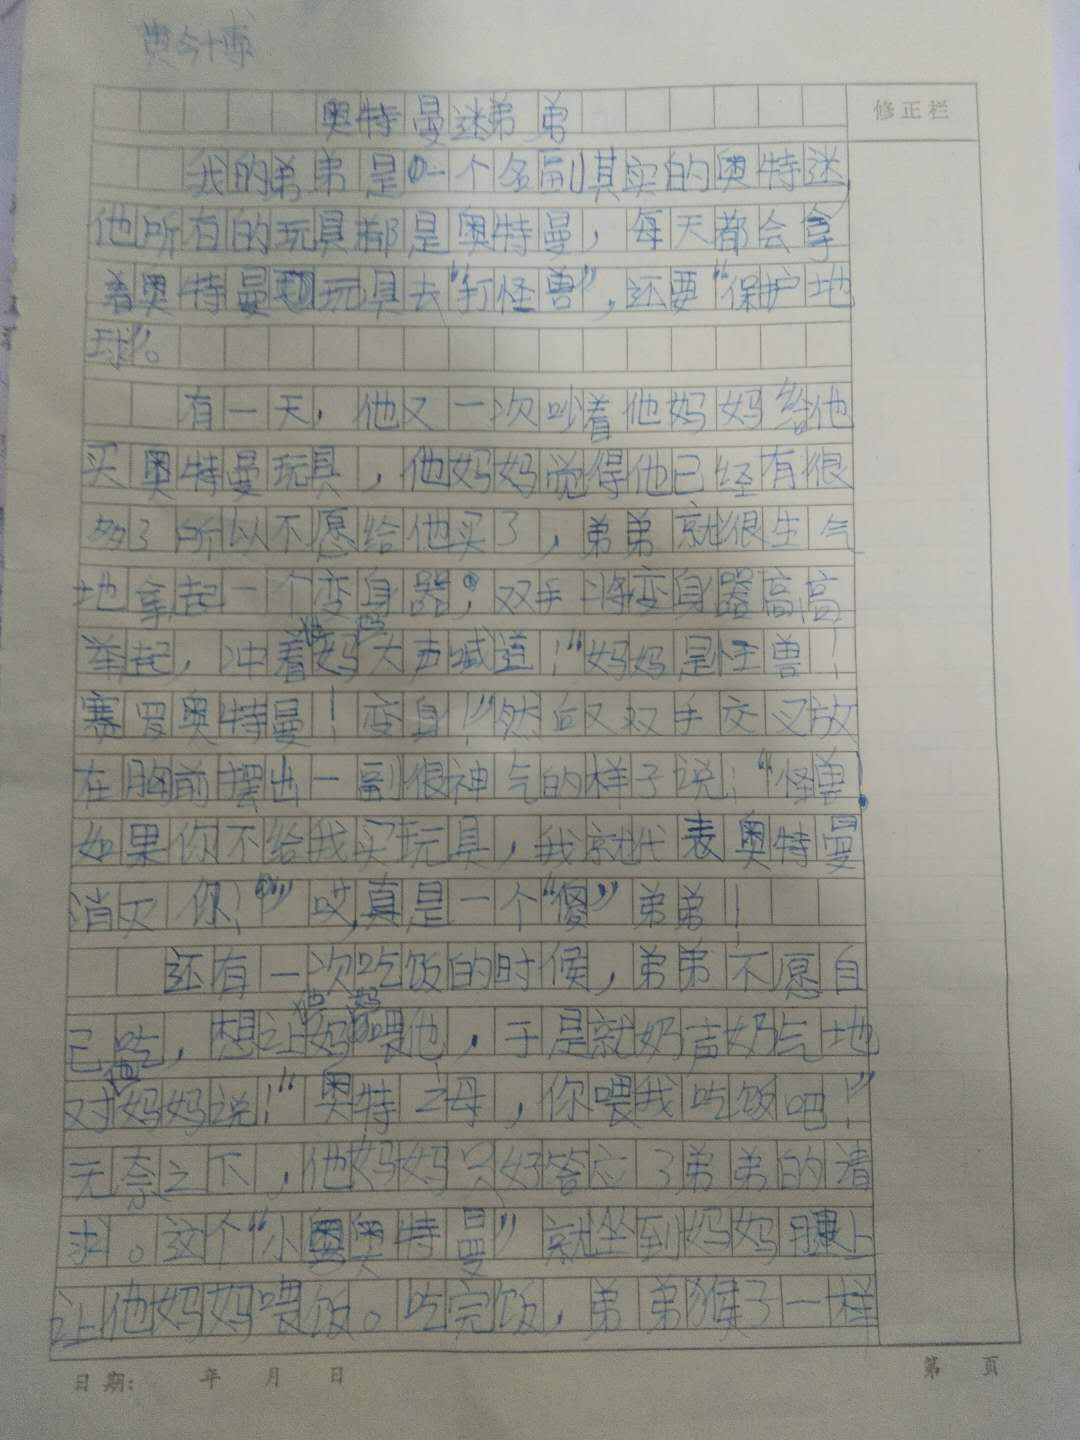 奥特曼迷弟弟
修正栏
我的弟弟是一个名副其实的奥特迷,
他所有的玩具都是奥特曼，每天都会拿
着奥特曼玩具去“打怪兽”，还要“保护地
球”。
有一天，他又一次吵着他妈妈给他
买奥特曼玩具，他妈妈觉得他已经有很
多了所以不愿给他买了，弟弟就很生气
地拿起一个变身器，双手将变身器高高
举起，冲着他妈妈大声喊道：“妈妈是怪兽！
赛罗奥特曼！变身！”然后又双手交叉放
在胸前摆出一副很神气的样子说：“怪兽，
如果你不给我买玩具，我就代表奥特曼
消灭你！”哎，真是一个“傻”弟弟！
还有一次吃饭的时候，弟弟不愿自
己吃，想让他妈妈喂他，于是就奶声奶气地
对他妈妈说：“奥特之母，你喂我吃饭吧！”
无奈之下，他妈妈只好答应了弟弟的请
求。这个“小奥特曼”就坐到妈妈腿上
让他妈妈喂饭。吃完饭，弟弟猴子一样
日期： 年 月 日
第 页